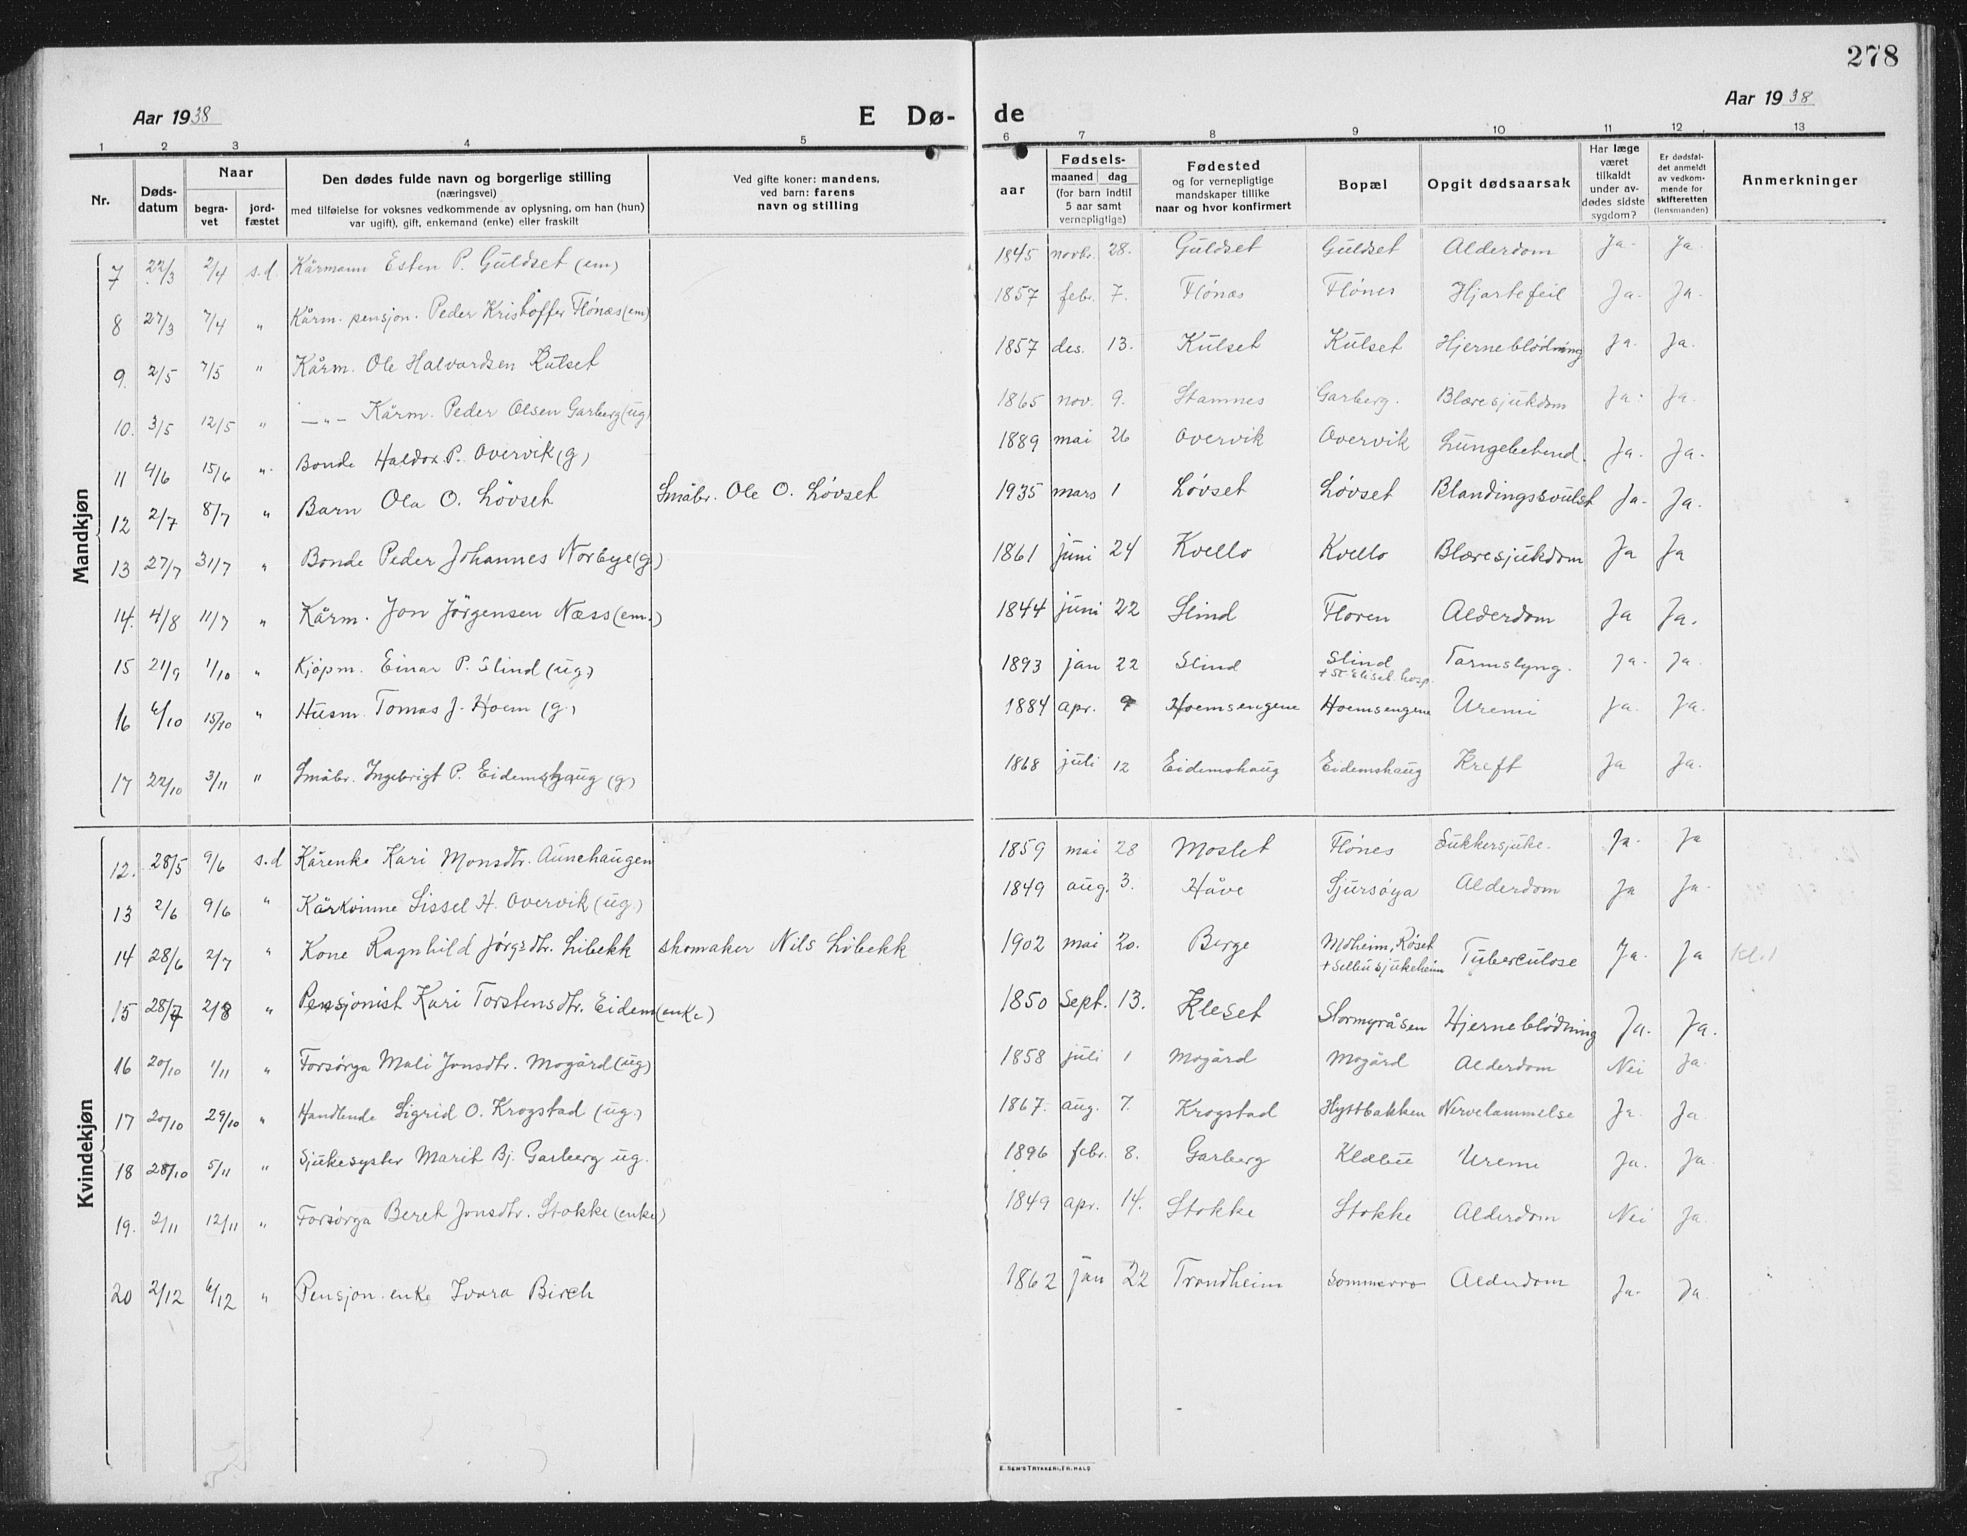 278
Aar 1938 E Dø- de Aar 1938
1 2 3 4 5 6 7 8 9 10 11 12 13
Nr.
Døds-
datum
Naar
begra-
vet
jord-
fæstet
Den dødes fulde navn og borgerlige stilling
(næringsvei)
med tilføielse for voksnes vedkommende av oplysning, om han (hun)
var ugift), gift, enkemand (enke) eller fraskilt
Ved gifte koner: mandens,
ved barn: farens
navn og stilling
Fødsels-
aar
maaned dag
(for barn indtil
5 aar samt
vernepligtige)
Fødested
og for vernepligtige
mandskaper tillike
naar og hvor konfirmert
Bopæl
Opgit dødsaarsak
Har læge
været
tilkaldt
under av-
dødes sidste
sygdom?
Er dødsfal-
det anmeldt
av vedkom-
mende for
skifteretten
(lensmanden)
Anmerkninger
Mandkjøn
7 22/3 2/4 s.d. Kårmann Esten P. Guldset (em) 1845 novbr. 28. Guldset Guldset Alderdom Ja. Ja.
8 27/3 7/4 " Kårm. pensjon. Peder Kristoffer Flönæs (em) 1857 febr. 7. Flönæs Flönes Hjartefeil Ja. Ja.
9. 2/5 7/5 " Kårm. Ole Halvardsen Kulset 1857 des. 13. Kulset Kulset Hjerneblødning Ja. Ja.
10. 3/5 12/5 " —"— Kårm. Peder Olsen Garberg (ug) 1865 nov. 9. Stamnes Garberg. Blæresjukdom Ja. Ja.
11 4/6 15/6 " Bonde Haldor P. Overvik (g) 1889 mai 26 Overvik Overvik Lungebetend. Ja. Ja.
12 2/7 8/7 " Barn Ola O. Lövset Småbr. Ole O. Lövset 1935 mars 1 Lövset Lövset Blandingssvulst Ja. Ja.
13 27/7 31/7 " Bonde Peder Johannes Norbye (g) 1861 juni 24 Kvello Kvello Blæresjukdom Ja Ja
14. 4/8 11/7 " Kårm. Jon Jörgensen Næss (em.) 1844 juni 22 Slind Floren Alderdom Ja Ja.
15 21/9 1/10 " Kjöpm. Einar P. Slind (ug) 1893 jan 22 Slind Slind Tarmslyng. Ja. Ja.
+ St. Elisab. hosp.
16 6/10 15/10 " Husm. Tomas J. Hoem (g.) 1884 apr. 9 Hoemsengene Hoemsengene Uremi Ja. Ja.
17 22/10 3/11 " Småbr. Ingebrigt P. Eidemshaug (g) 1868 juli 12 Eidemshaug Eidemshaug Kreft Ja Ja.
Kvindekjøn
12. 28/5 9/6 s.d Kårenke Kari Monsdtr. Aunehaugen 1859 mai 28 Moslet Flönes Sukkersjuke. Ja. Ja
13 2/6 9/6 " Kårkvinne Sissel H. Overvik (ug.) 1849 aug. 3. Håve Sjursöya Alderdom Ja Ja.
14 28/6 2/7 " Kone Ragnhild Jörgsdtr. Libekk skomaker Nils Libekk 1902 mai 20. Berge Moheim, Röset Tuberculose Ja. Ja Kl. 1
+ Selbu sjukeheim
15 28/7 2/8 " Pensjonist Kari Torstensdtr. Eidem (enke) 1850 Sept. 13. Kleset Stormyråsen Hjerneblödning Ja. Ja.
16 20/10 1/11 " Forsörga Mali Jonsdtr. Mogård (ug) 1858 juli 1 Mogård Mogård Alderdom Nei Ja.
17 20/10 29/10 " Handlende Sigrid O. Krogstad (ug.) 1867. aug. 7. Krogstad Hyttbakken Nervelammelse Ja. Ja.
18 28/10 5/11 " Sjukesyster Marit Bj. Garberg ug. 1896 febr. 8. Garberg Klæbu Uremi Ja. Ja.
19. 2/11 12/11 " Forsörga Beret Jonsdtr. Stokke (enke) 1849 apr. 14. Stokke Stokke Alderdom Nei Ja.
20 2/12 6/12 " Pensjon. enke Ivara Birch 1862 jan 22 Trondheim Sommerro Alderdom Ja. Ja.
E. SEM'S TRYKKERI, FR.HALD